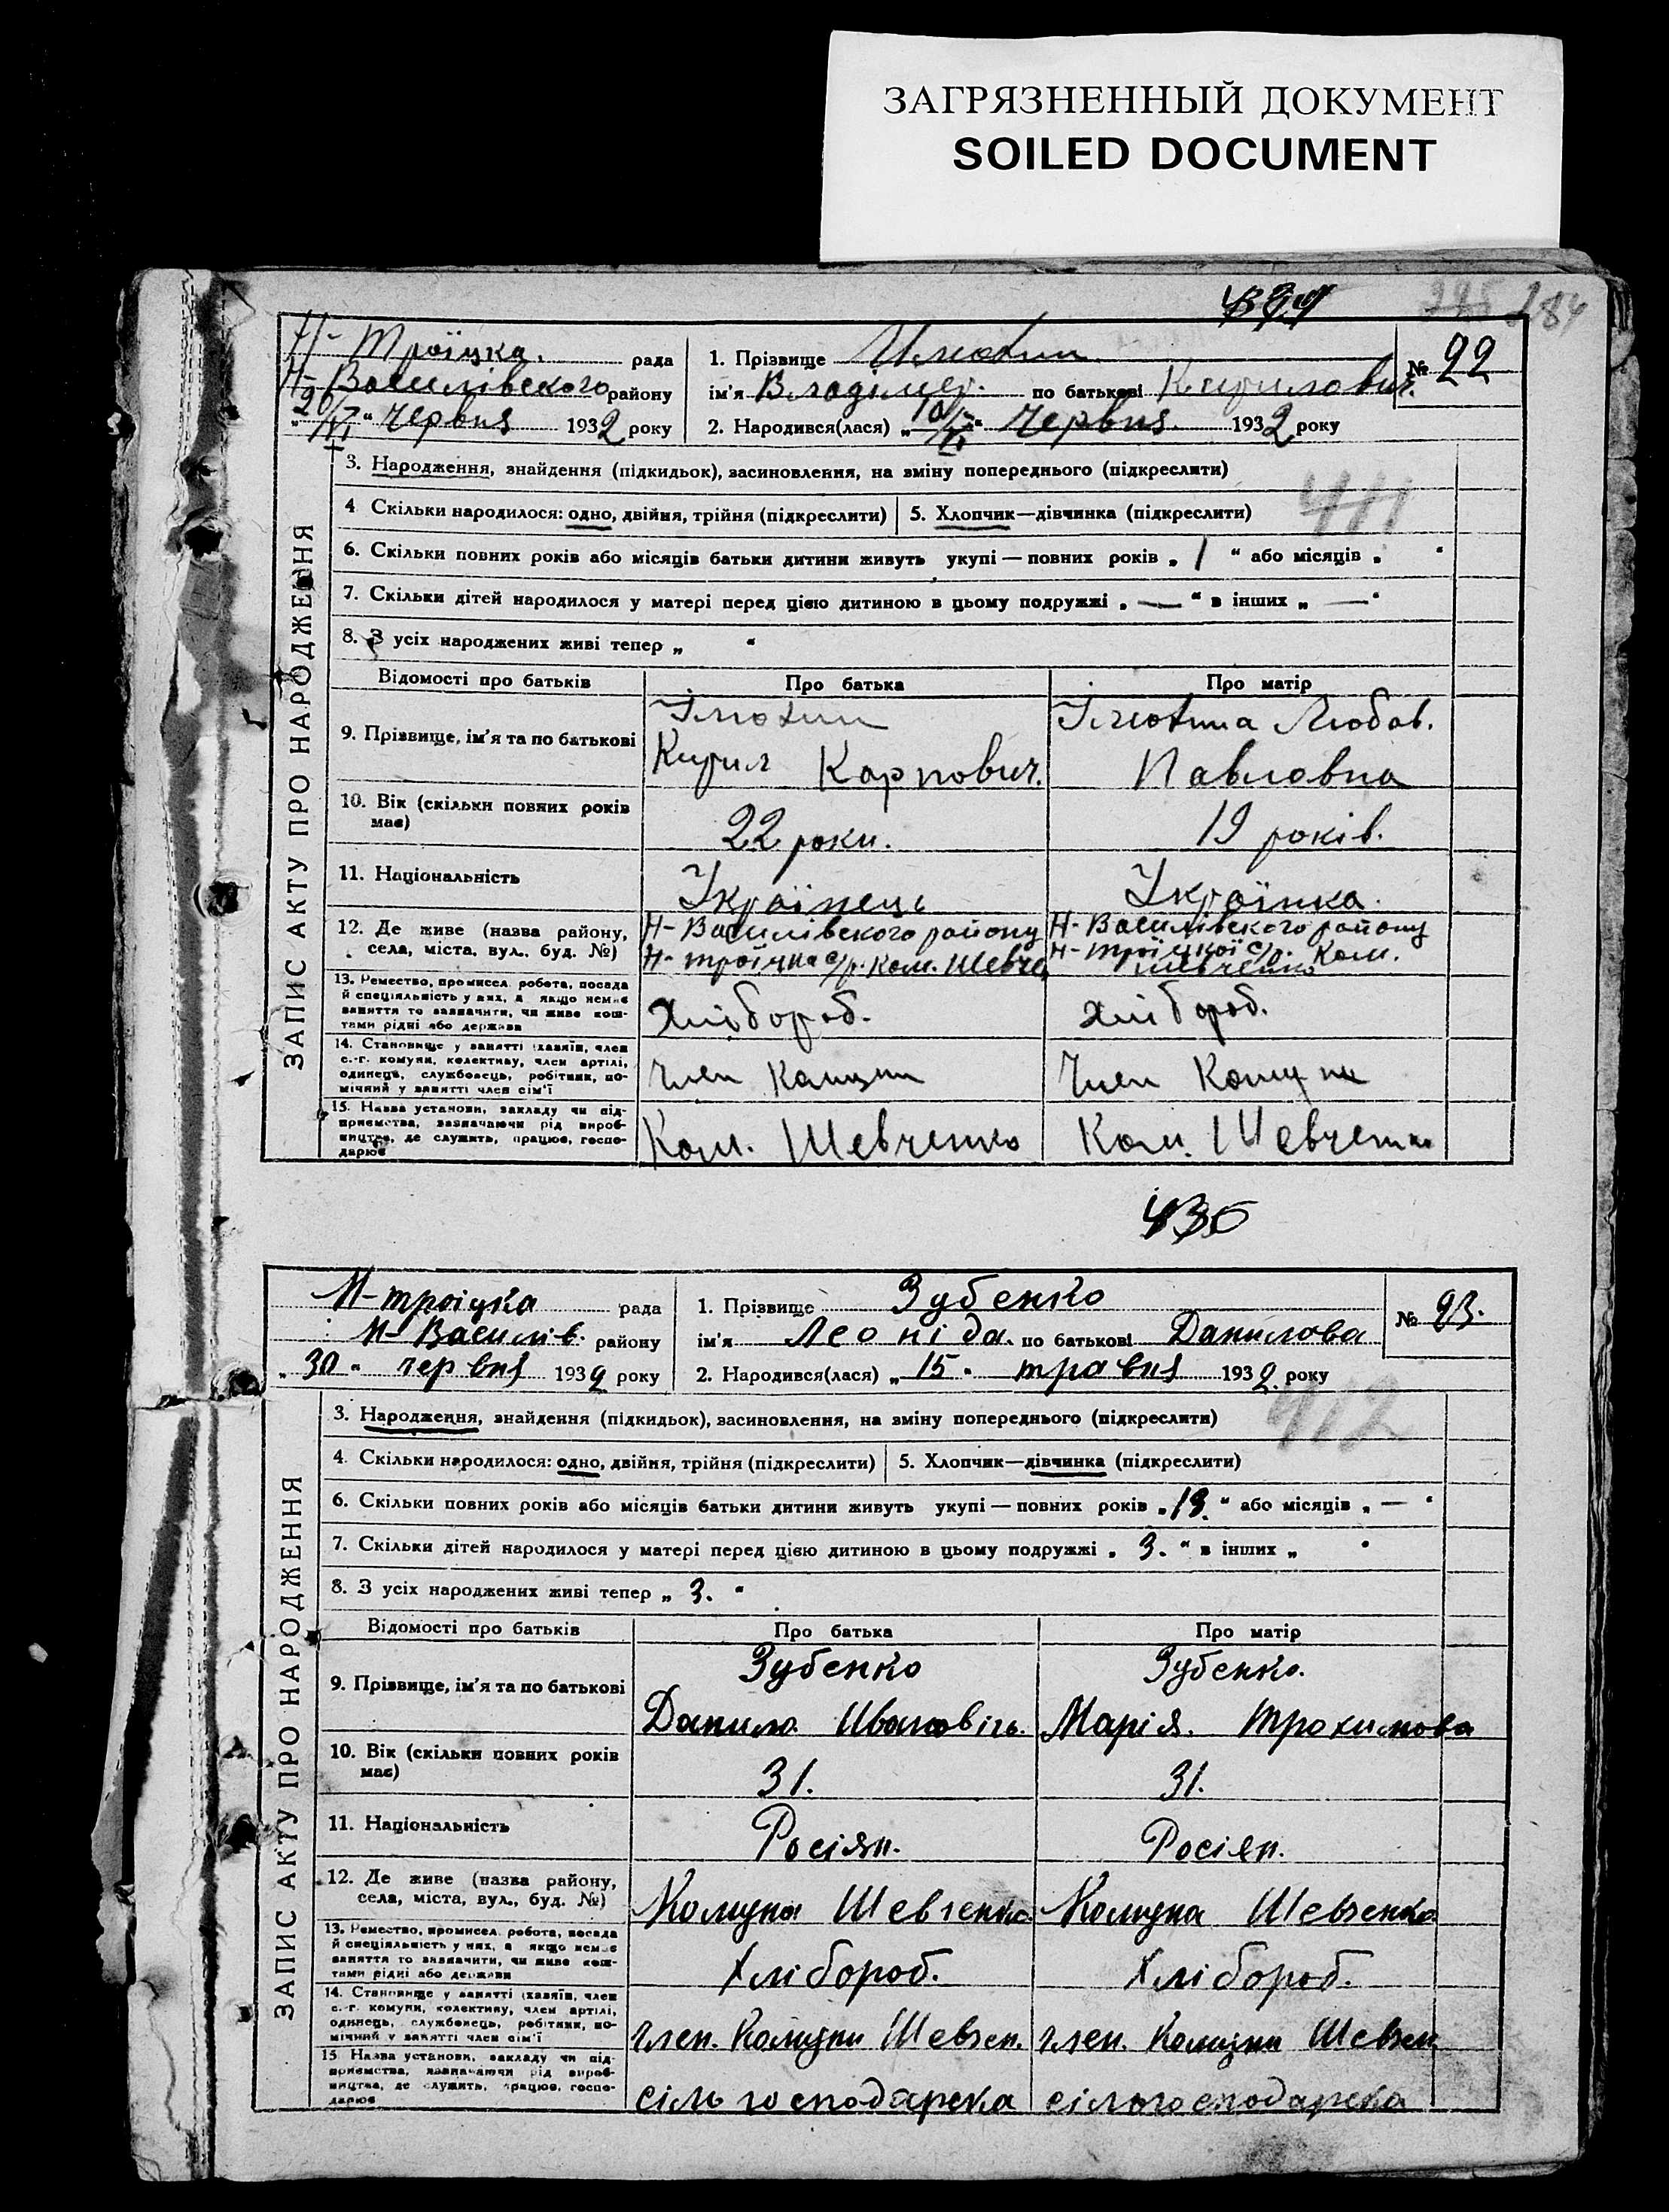 ЗАГРЯЗНЕННЫЙ ДОКУМЕНТ
SOILED DOCUMENT
284
Н-Троїцка. рада
Н-Василівского району
„20/VI“ Червня 1932 року
1. Прізвище
ім'я Владімер. по батькові Кирилович.
№ 22
2. Народився(лася) „10/VI“ Червня 1932 року
ЗАПИС АКТУ ПРО НАРОДЖЕННЯ
3. Народження, знайдення (підкидьок), засиновлення, на зміну попереднього (підкреслити)
411
4 Скільки народилося: одно, двійня, трійня (підкреслити)
5. Хлопчик—дівчинка (підкреслити)
6. Скільки повних років або місяців батьки дитини живуть укупі — повних років „ 1 “ або місяців „ “
7. Скільки дітей народилося у матері перед цією дитиною в цьому подружжі „ — “ в інших „ — “
8. З усіх народжених живі тепер „ “
Відомості про батьків
Про батька
Про матір
9. Прізвище, ім'я та по батькові
Кирил Карпович.
Любов.
Павловна
10. Вік (скільки повних років має)
22 роки.
19 років.
11. Національність
Українець
Українка.
12. Де живе (назва району, села, міста, вул. буд. №)
Н-Василівского району
Н-троїцка с/р. Ком. Шевче
Н-Василівского району
Н-троїцкої с/р. Ком.
Шевченко
13. Ремество, промисел, робота, посада й спеціяльність у них, а якщо немає заняття то зазначити, чи живе коштами рідні або держави
Хлібороб.
Хлібороб.
14. Становище у занятті (хазяїн, член с.-г. комуни, колективу, член артілі, одинець, службовець, робітник, помічний у занятті член сім'ї
Член Комуни
Член Комуни
15. Назва установи, закладу чи підприємства, зазначаючи рід виробництва, де служить, працює, господарює
Ком. Шевченко
Ком. Шевченко
436
Н-троіцка рада
Н-Василів. району
„30“ червня 1932 року
1. Прізвище Зубенко
ім'я Леоніда. по батькові Данилова
№ 23.
2. Народився(лася) „15“ травня 1932. року
ЗАПИС АКТУ ПРО НАРОДЖЕННЯ
3. Народження, знайдення (підкидьок), засиновлення, на зміну попереднього (підкреслити)
412
4. Скільки народилося: одно, двійня, трійня (підкреслити)
5. Хлопчик—дівчинка (підкреслити)
6. Скільки повних років або місяців батьки дитини живуть укупі — повних років „13.“ або місяців „ — “
7. Скільки дітей народилося у матері перед цією дитиною в цьому подружжі „ 3. “ в інших „ “
8. З усіх народжених живі тепер „ 3. “
Відомості про батьків
Про батька
Про матір
9. Прізвище, ім'я та по батькові
Зубенко
Данило Ивановічь.
Зубенко.
Марія. Трохимова
10. Вік (скільки повних років має)
31.
31.
11. Національність
Росіян.
Росіян.
12. Де живе (назва району, села, міста, вул., буд. №)
Комуна Шевченко
Комуна Шевченко
13. Ремество, промисел, робота, посада й спеціяльність у них, а якщо немає заняття то зазначити, чи живе коштами рідні або держави
Хлібороб.
Хлібороб.
14. Становище у занятті (хазяїн, член с.-г. комуни, колективу, член артілі, одинець, службовець, робітник, помічний у занятті член сім'ї
член. Комуни Шевчен.
член. Комуни Шевчен.
15 Назва установи, закладу чи підприємства, зазначаючи рід виробництва, де служить, працює, господарює
сільгосподарска
сільгосподарска